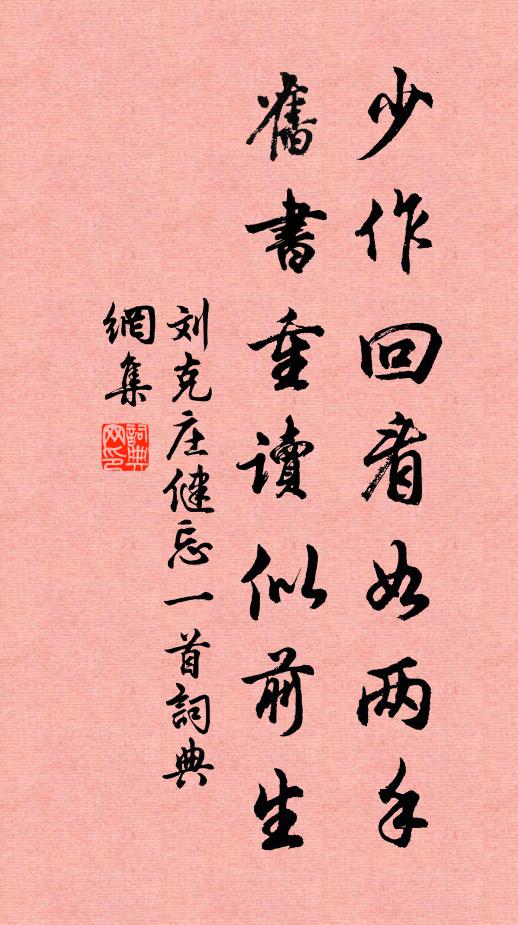 少作回看如两手
舊書重讀似前生
刘克庄健忘一首詞典
網集
詞典网印